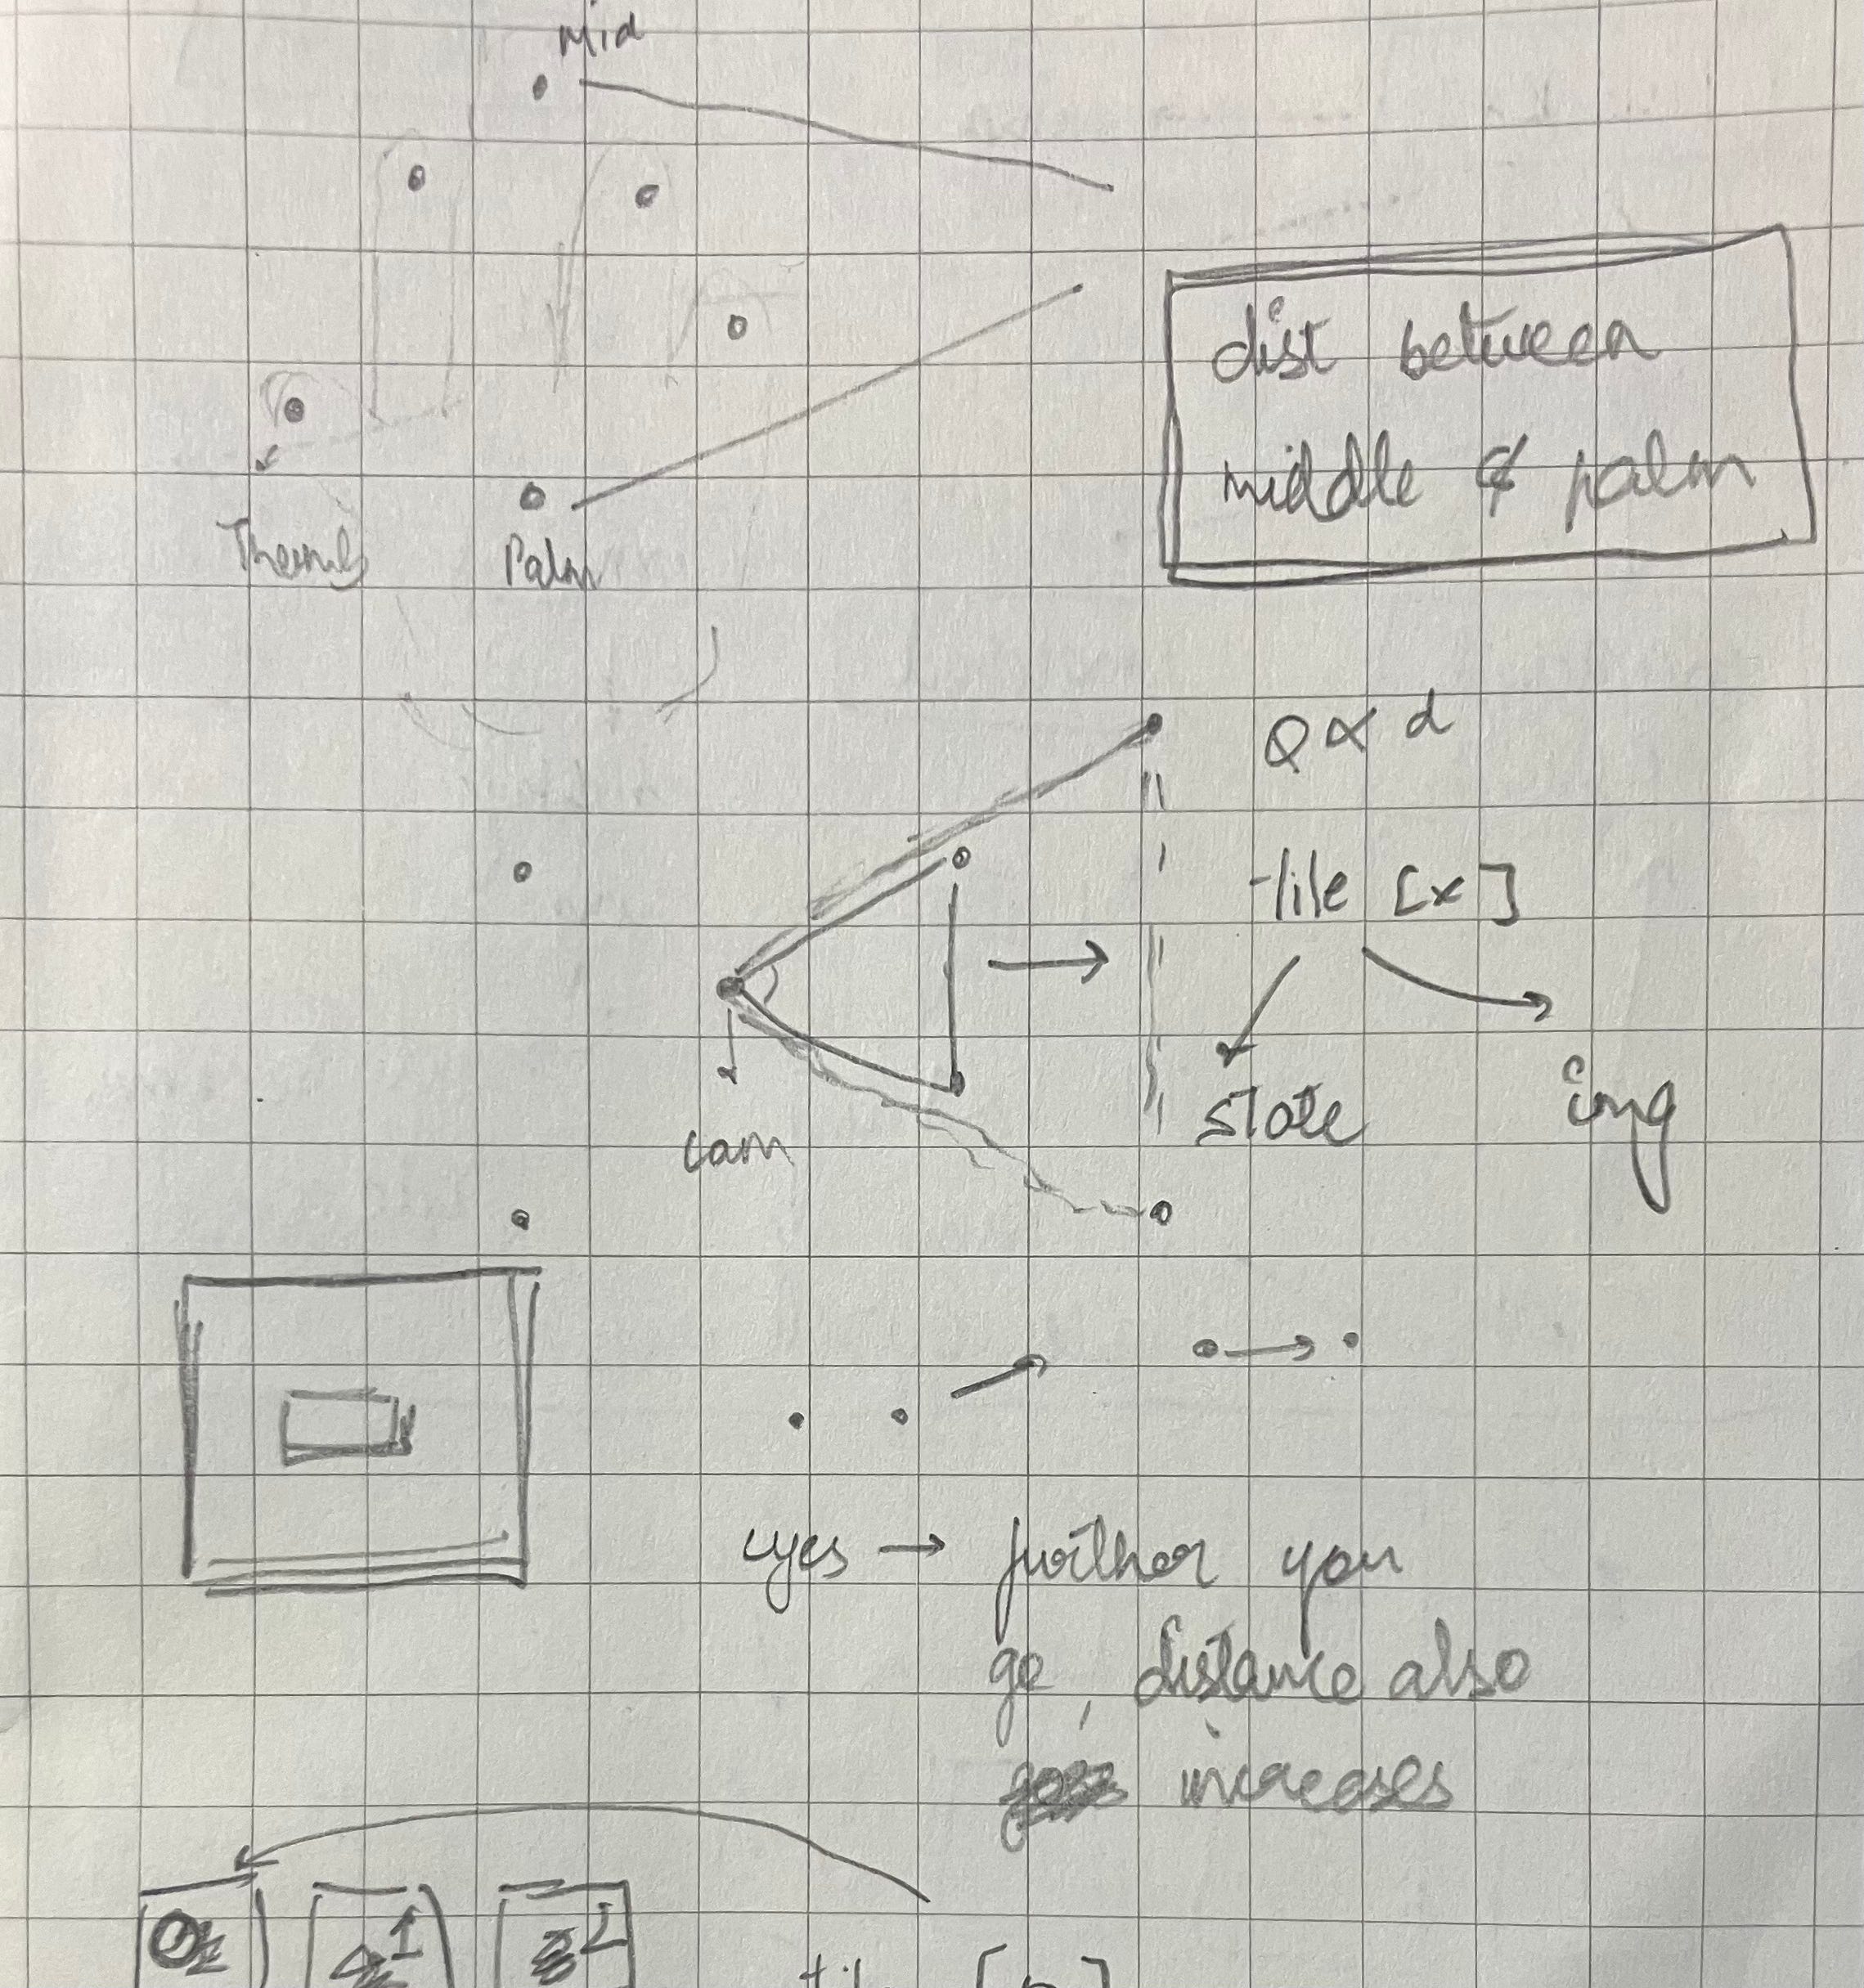 Mid
dist between
middle & palm
Thumb
Palm
Q ∝ d
tile [x]
state
img
cam
eyes → further you
go, distance also
increases
0
1
2